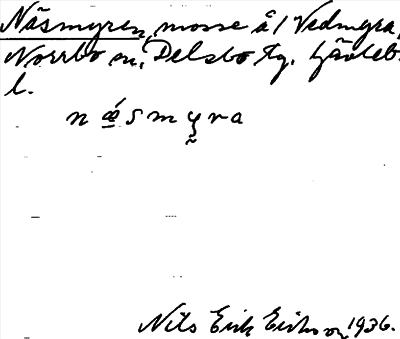 Näsmyren, mosse å 1 Vedmyra,
Norrbo sn, Delsbo tg. Gävleb.
l.
næ´smyra
Nils Erik Erikson 1936.